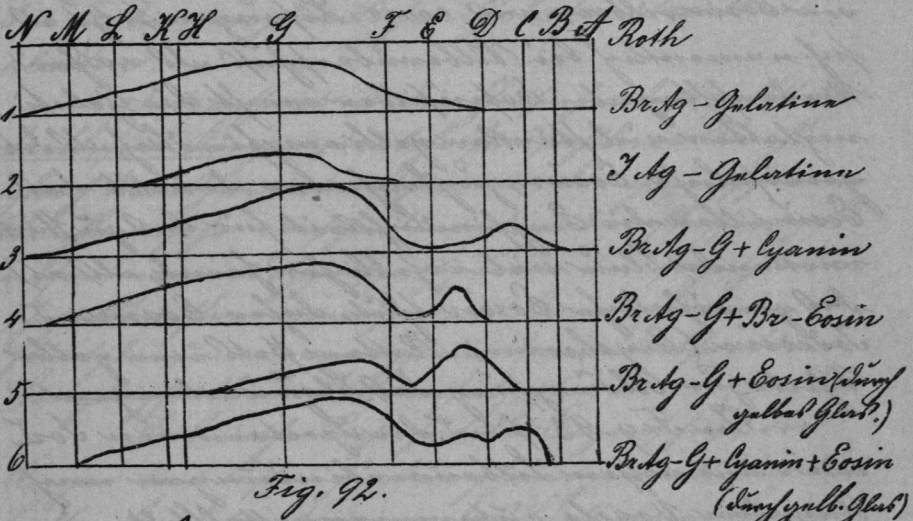 N M L K H G F E D C B A Roth
1 BrAg - Gelatine
2 J Ag - Gelatine
3 BrAg - G + Cyanin
4 BrAg - G + Br - Eosin
5 BrAg - G + Eosin (durch
gelbes Glas.)
6 BrAg - G + Cyanin + Eosin
(durch gelb. Glas)
Fig. 92.